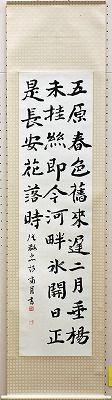 五原春色舊来遲二月垂楊
未挂絲即今河畔氷開日正
是長安花落時
張敬忠詩